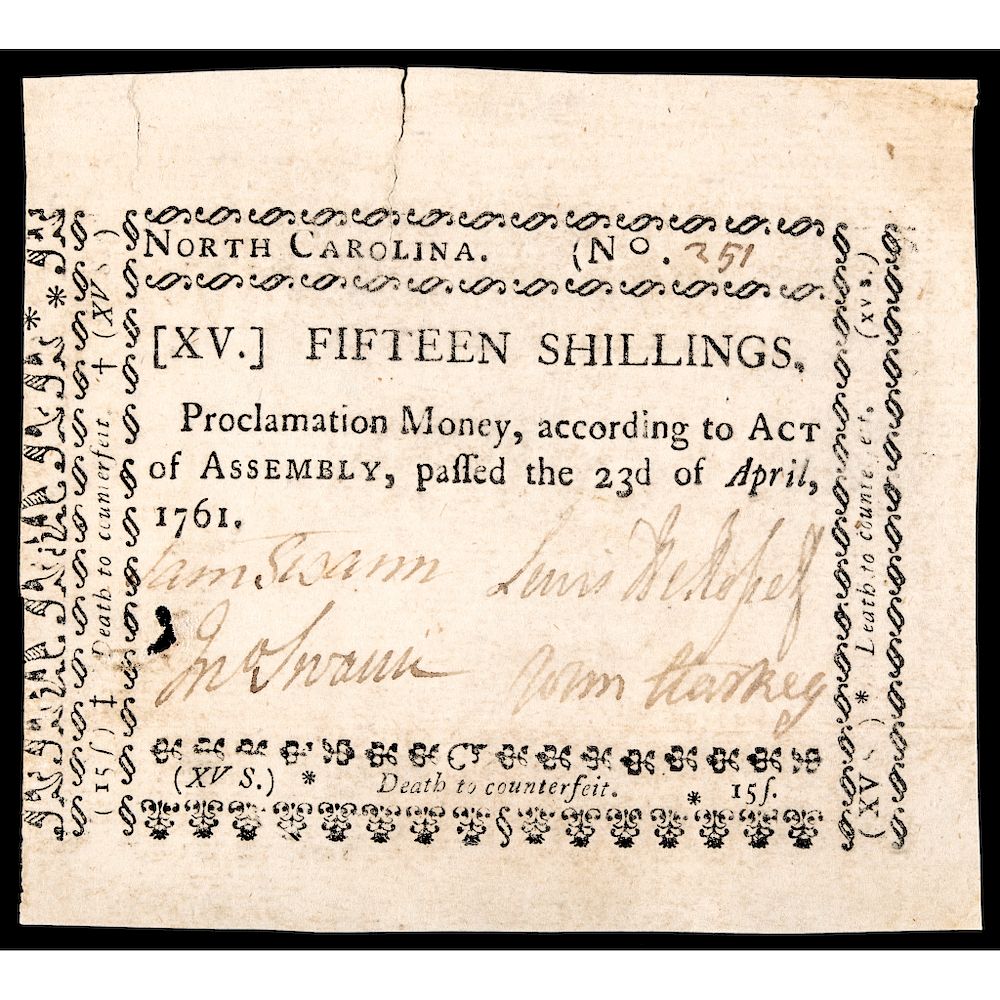 NORTH CAROLINA. (No. 351
[XV.] FIFTEEN SHILLINGS,
Proclamation Money, according to ACT
of ASSEMBLY, paſſed the 23d of April,
1761.
Sam Swann Lewis De Roſſet
Jno Swann John Starkey
(XV S.) * Death to counterfeit. * 15ſ.
(15ſ) ‡ Death to counterfeit. † (XV S)
(XV S) * Death to counterfeit, (XV S.)